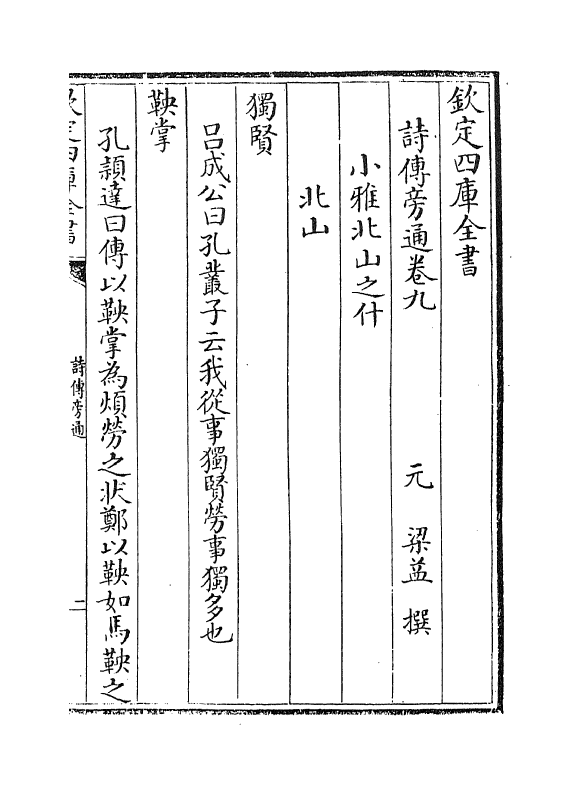 欽定四庫全書
詩傳旁通卷九 元 梁益 撰
小雅北山之什
北山
獨賢
呂成公曰孔叢子云我從事獨賢勞事獨多也
鞅掌
孔頴達曰傳以鞅掌為煩勞之狀鄭以鞅如馬鞅之
欽定四庫全書
詩傳旁通
二